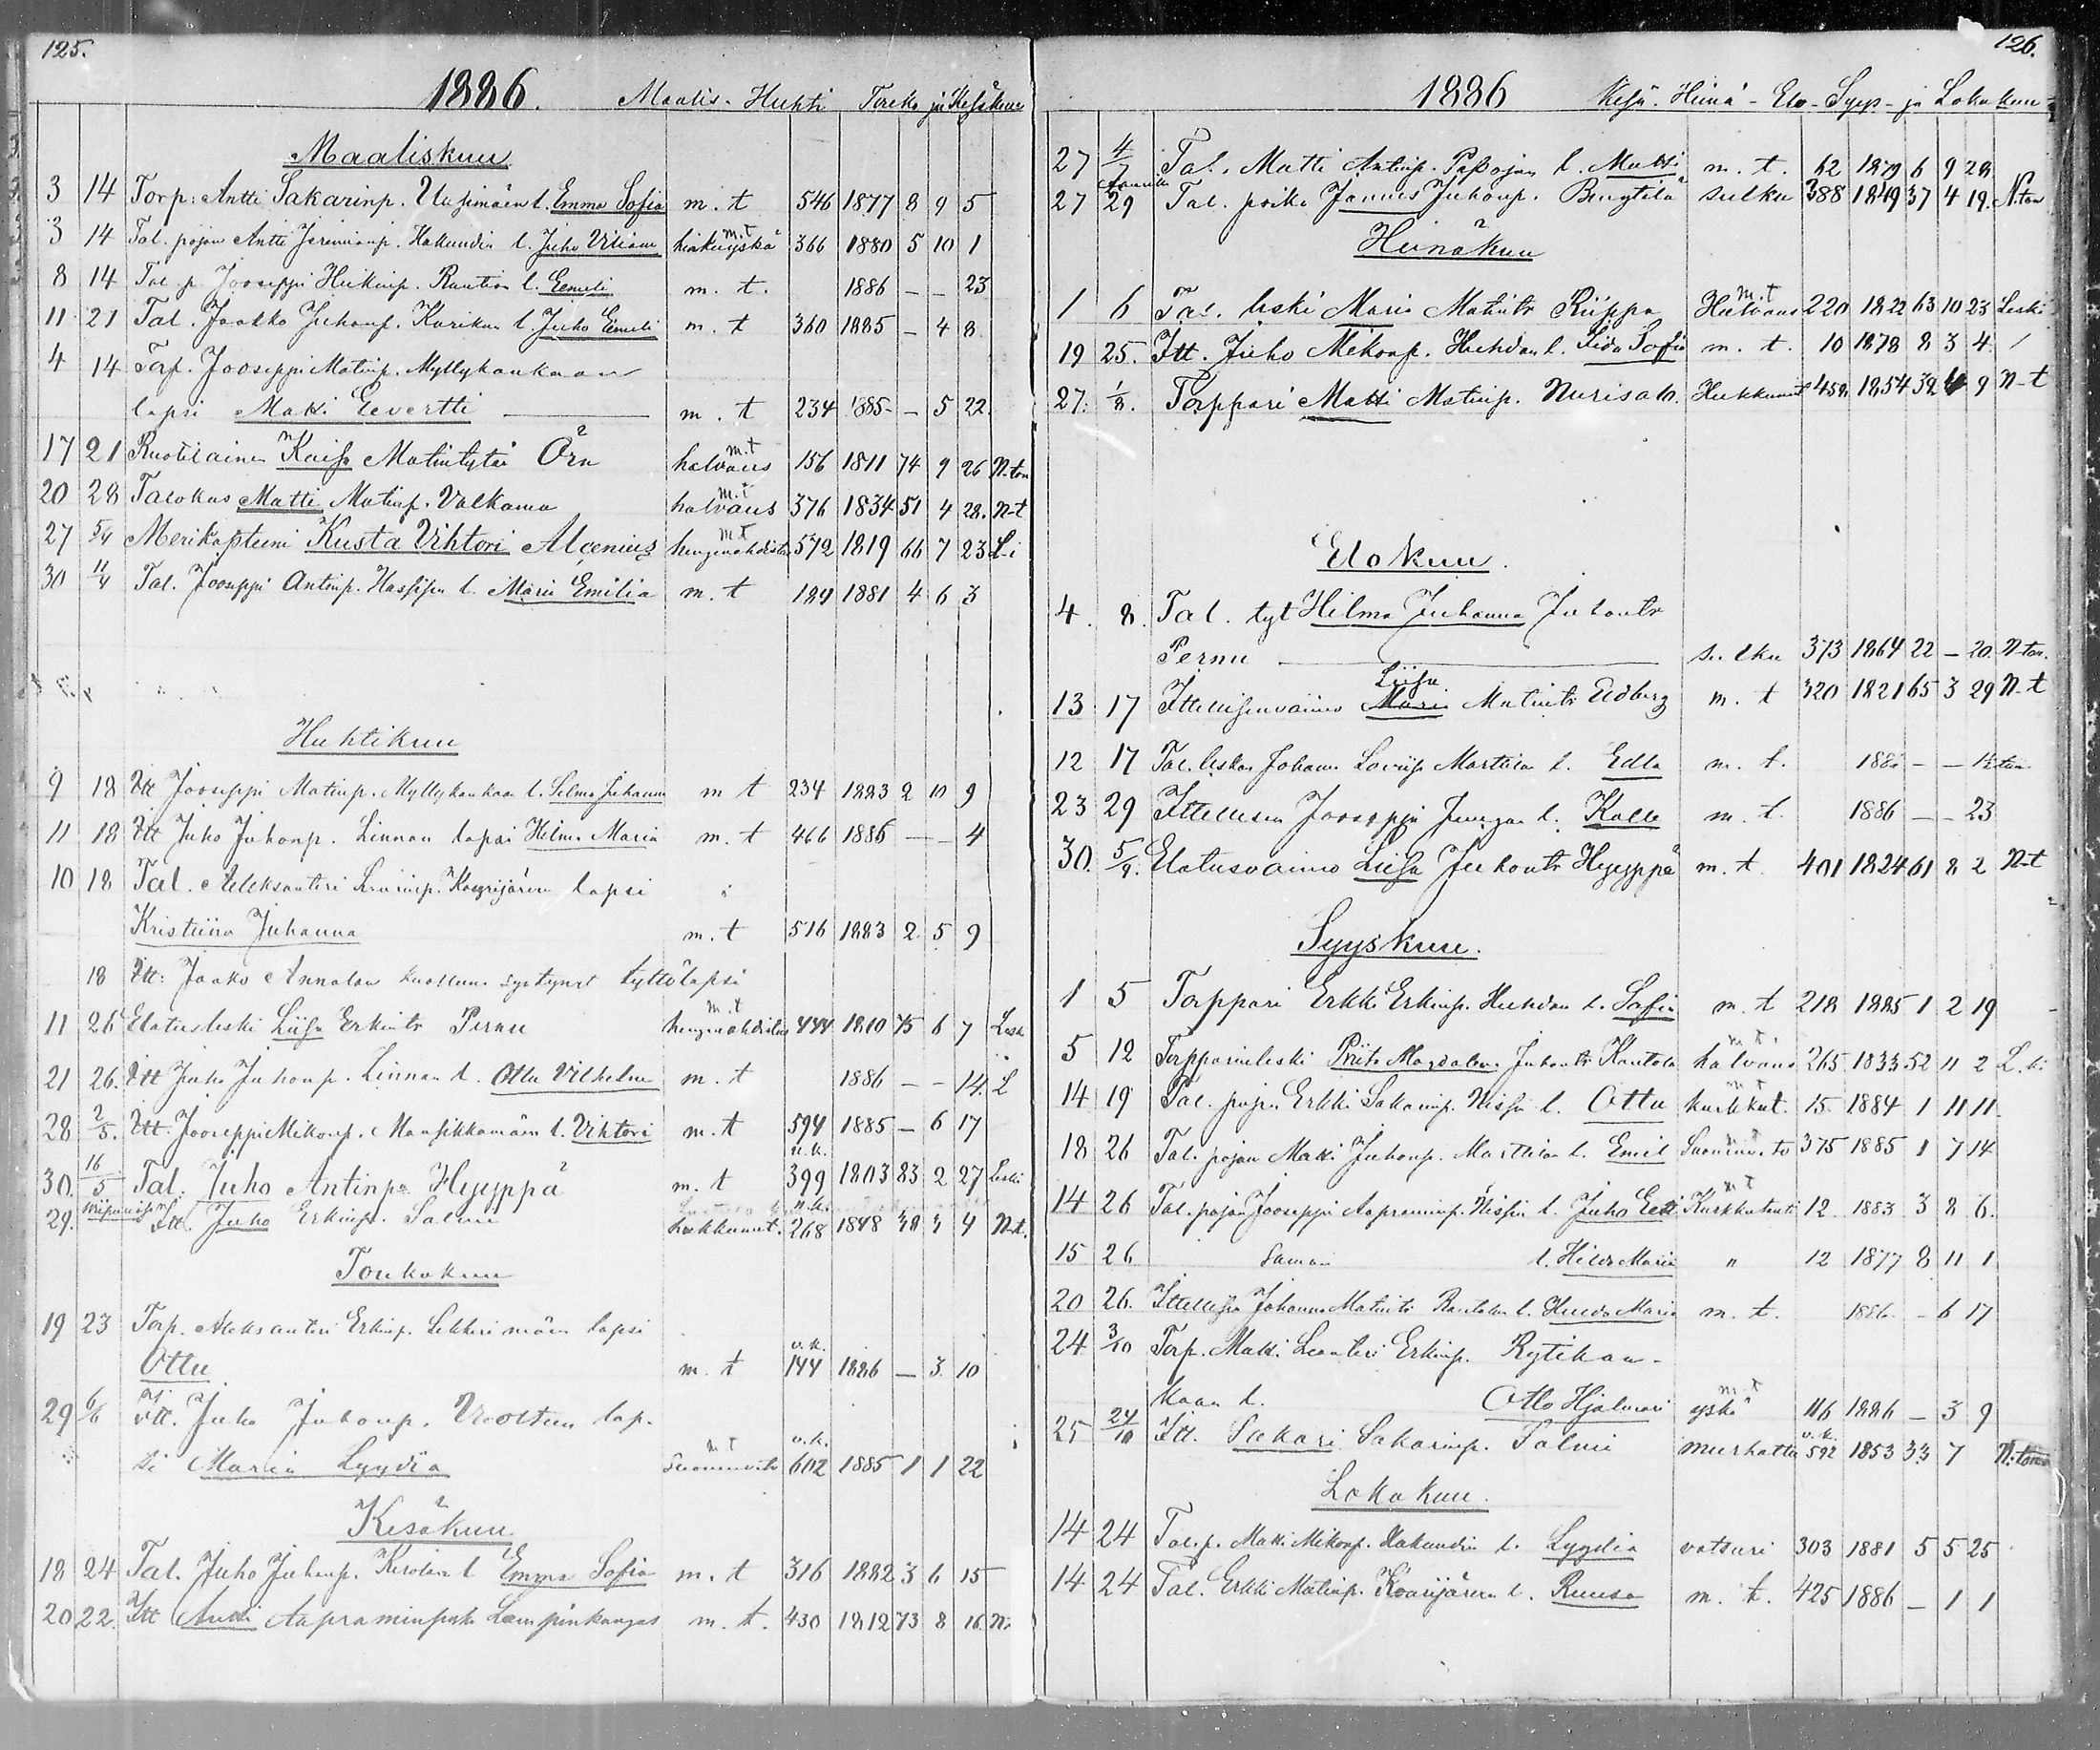 125.
1886. Maalis- Huhti Touko ja Kesäkuu
Maaliskuu
3 14 Torp. Antti Sakarinp. Uusimäen l. Emma Sofia m. t 546 1877 8 9 5
3 14 Tal. pojan Antti Jeremianp. Hakundin l. Juho Viliam hinkuyskä m.t 366 1880 5 10 1
8 14 Tal p. Jooseppi Heikinp. Raution l. Eemeli m. t. 1886 — — 23
11 21 Tal. Jaakko Juhonp. Karikan l Juho Eemeli m. t 360 1885 — 4 8.
4 14 Torp. Jooseppi Matinp. Myllykankaan
lapsi Matti Eevertti m. t 234 1885 — 5 22.
17 21 Ruotilainen Kaisa Matintytär Örn halvaus m.t 156 1811 74 9 26 N-ton
20 28 Talokas Matti Matinp. Valkama halvaus m.t 376 1834 51 4 28. N-t
27 5/4 Merikapteeni Kusta Vihtori Alcenius hengenahdistus m.t 572 1819 66 7 23 L-i
30 11/4 Tal. Jooseppi Antinp. Hassisen l. Maria Emilia m. t 189 1881 4 6 3
Huhtikuu
9 18 Itt Jooseppi Matinp. Myllykankaan l. Selma Juhanna m t 234 1883 2 10 9
11 18 Itt Juho Juhonp. Linnan lapsi Hilma Maria m. t 466 1886 — — 4
10 18 Tal. Aleksanteri Koarijärven lapsi
Kristiina Juhanna m. t 516 1883 2 5 9
18 Itt: Jaako Annalan kuollun. syntynyt tyttölapsi
11 26 Elatusleski Liisa Erkintr Pernu hengenahdistus m.t 444 1810 75 6 7 Leski
21 26. Itt Juho Juhonp. Linnan l. Otto Vilhelm m. t 1886 — — 14. L
28 2/5. Itt. Jooseppi Mikonp. Mansikkamäen l. Vihtori m. t 594 1885 — 6 17
u.k.
30. 16/5 Tal. Juho Antinp. Hyyppä m. t 399 1803 83 2 27 Leski
29. Itt. Juho Erkinp. Salmi hukkunut. 268 1848 38 3 4 N-t.
Toukokuu
19 23 Torp. Aleksanteri Erkinp. Lekkerimäen lapsi
u.k.
Otto m. t 144 1886 — 3 10
29 6/6 Itt. Juho Juhonp. Vuoltun lap-
u.k.
si Maria Lyydia m.t 602 1885 1 1 22
Kesäkuu
18 24 Tal. Juho Juhonp. Kerolan l Emma Sofia m. t 316 1882 3 6 15
20 22. Itt Antti Aapraminpoika Lampinkangas m. t. 430 1812 73 8 16 N-
126.
1886 Kesä- Heinä- Elo- Syys- ja Lokakuu
27 4/7 Tal. Matti Antinp. Pasojan l. Matti m. t. 62 1879 6 9 28
27 29 Tal. poika Jannes Juhonp. Brugtilä sulku 388 1849 37 4 19. N.ton
Heinäkuu
1 6 Tal. leski Maria Matintr Riippa Halvaus m.t 220 1822 63 10 23 Leski
19 25. Itt. Juho Mikonp. Huhdan l. Iida Sofia m. t. 10 1878 8 3 4.
27. 1/8. Torppari Matti Matinp. Nurisalo. Hukkunut 458 1854 32 9 N-t
Elokuu.
4. 8. Tal. tyt Hilma Juhanna Juhontr
Pernu sulku 373 1864 22 — 20. N-ton.
Liisa
13 17 Itsellisenvaimo Maria Matintr Edberg m. t 320 1821 65 3 29 N-t
12 17 Tal. lesken Johann Marttilan l. Edla m. t. 188
23 29 Itsellisen Jooseppi Jungan l. Kalle m. t. 1886 — — 23
30. 5/9. Elatusvaimo Liisa Juhontr Hyyppä m. t. 401 1824 61 8 2 N-t
Syyskuu.
1 5 Torppari Erkki Erkinp. Huhdan l. Sofia m. t 218 1885 1 2 19
5 12 Torpparinleski Priita Magdalena Juhontr Kantola halvaus m t. 265 1833 52 11 2 L.ki
14 19 Tal. pojan Erkki Sakarinp. Nissin l. Otto kurkkut. m t 15 1884 1 11 11
18 26 Tal. pojan Matti Juhonp. Marttilan l. Emil m t 375 1885 1 7 14
14 26 Tal. pojan Jooseppi Aapraminp. Nissin l. Juho Eetti Kurkkutauti m t 12 1883 3 8 6.
15 26 Saman l. Hilda Maria " 12 1877 8 11 1
20 26. Itsellisen Johanna Matintr Rautolan l. Hulda Maria m. t. 1886. - 6 17
24 3/10 Torp. Matti Leanteri Erkinp. Rytikan-
kaan l. Otto Hjalmari yskä m t 116 1886 — 3 9
25 24/10 Itt. Sakari Sakarinp. Salmi murhattu u.k. 592 1853 33 7 N:ton
Lokakuu.
14 24 Tal.p. Matti Mikonp. Hakundin l. Lyydia vatsuri 303 1881 5 5 25
14 24 Tal. Erkki Matinp. Koarijärven l. Ruusa m. t. 425 1886 — 1 1